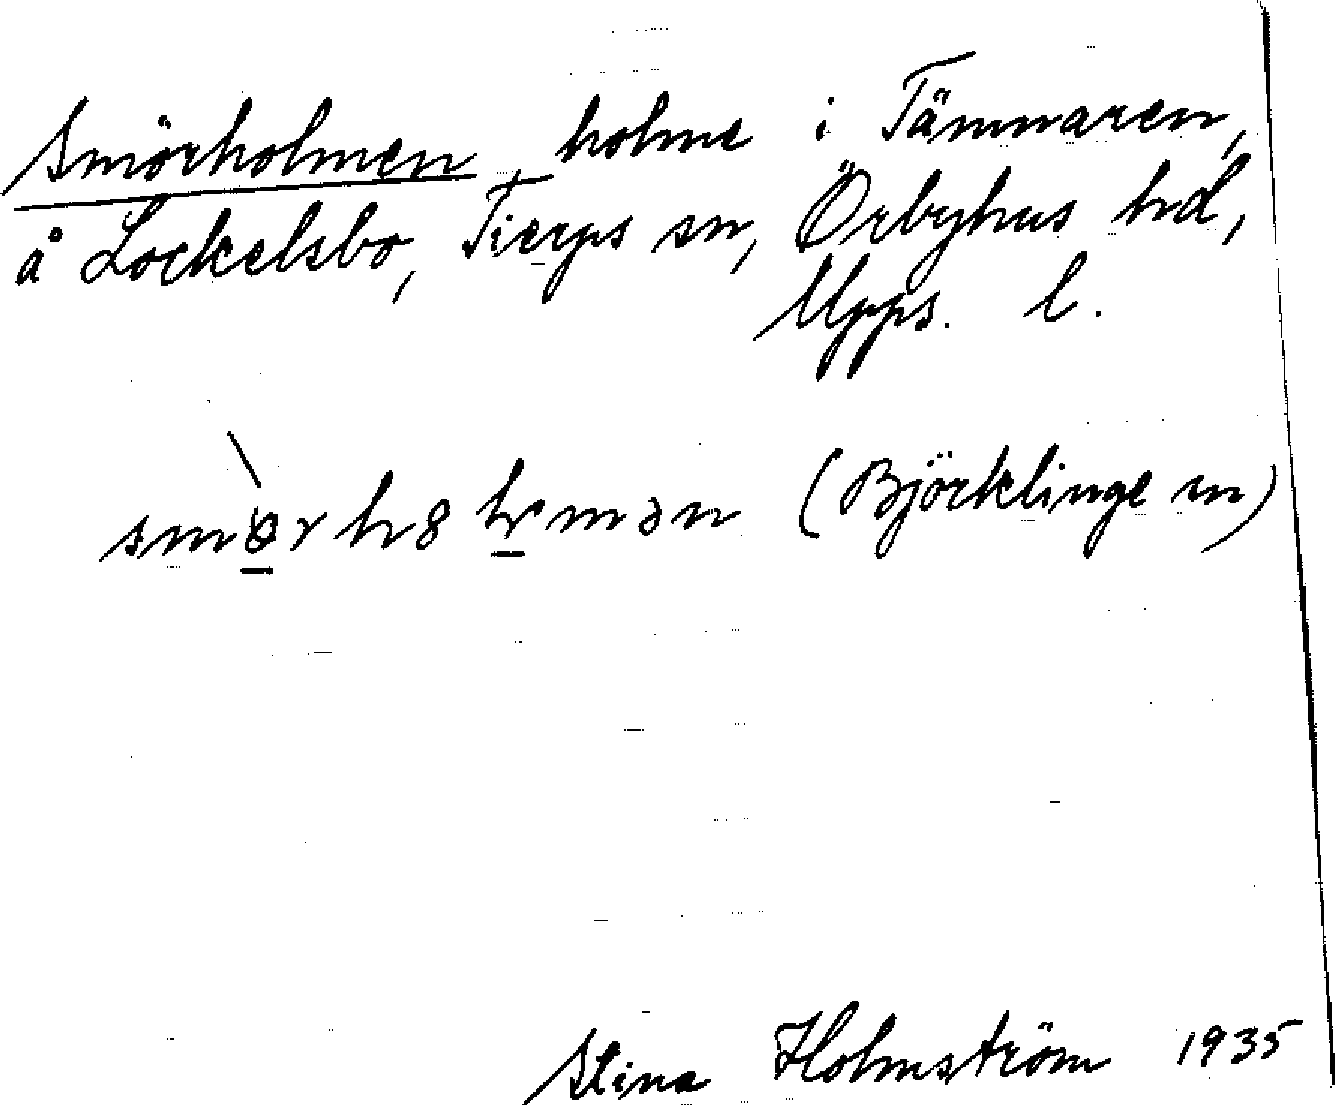 Smörholmen holme i Tämnaren,
å Lockelsbo, Tierps sn, Örbyhus hd,
Upps. l.
(Björklinge sn)
Stina Holmström 1935